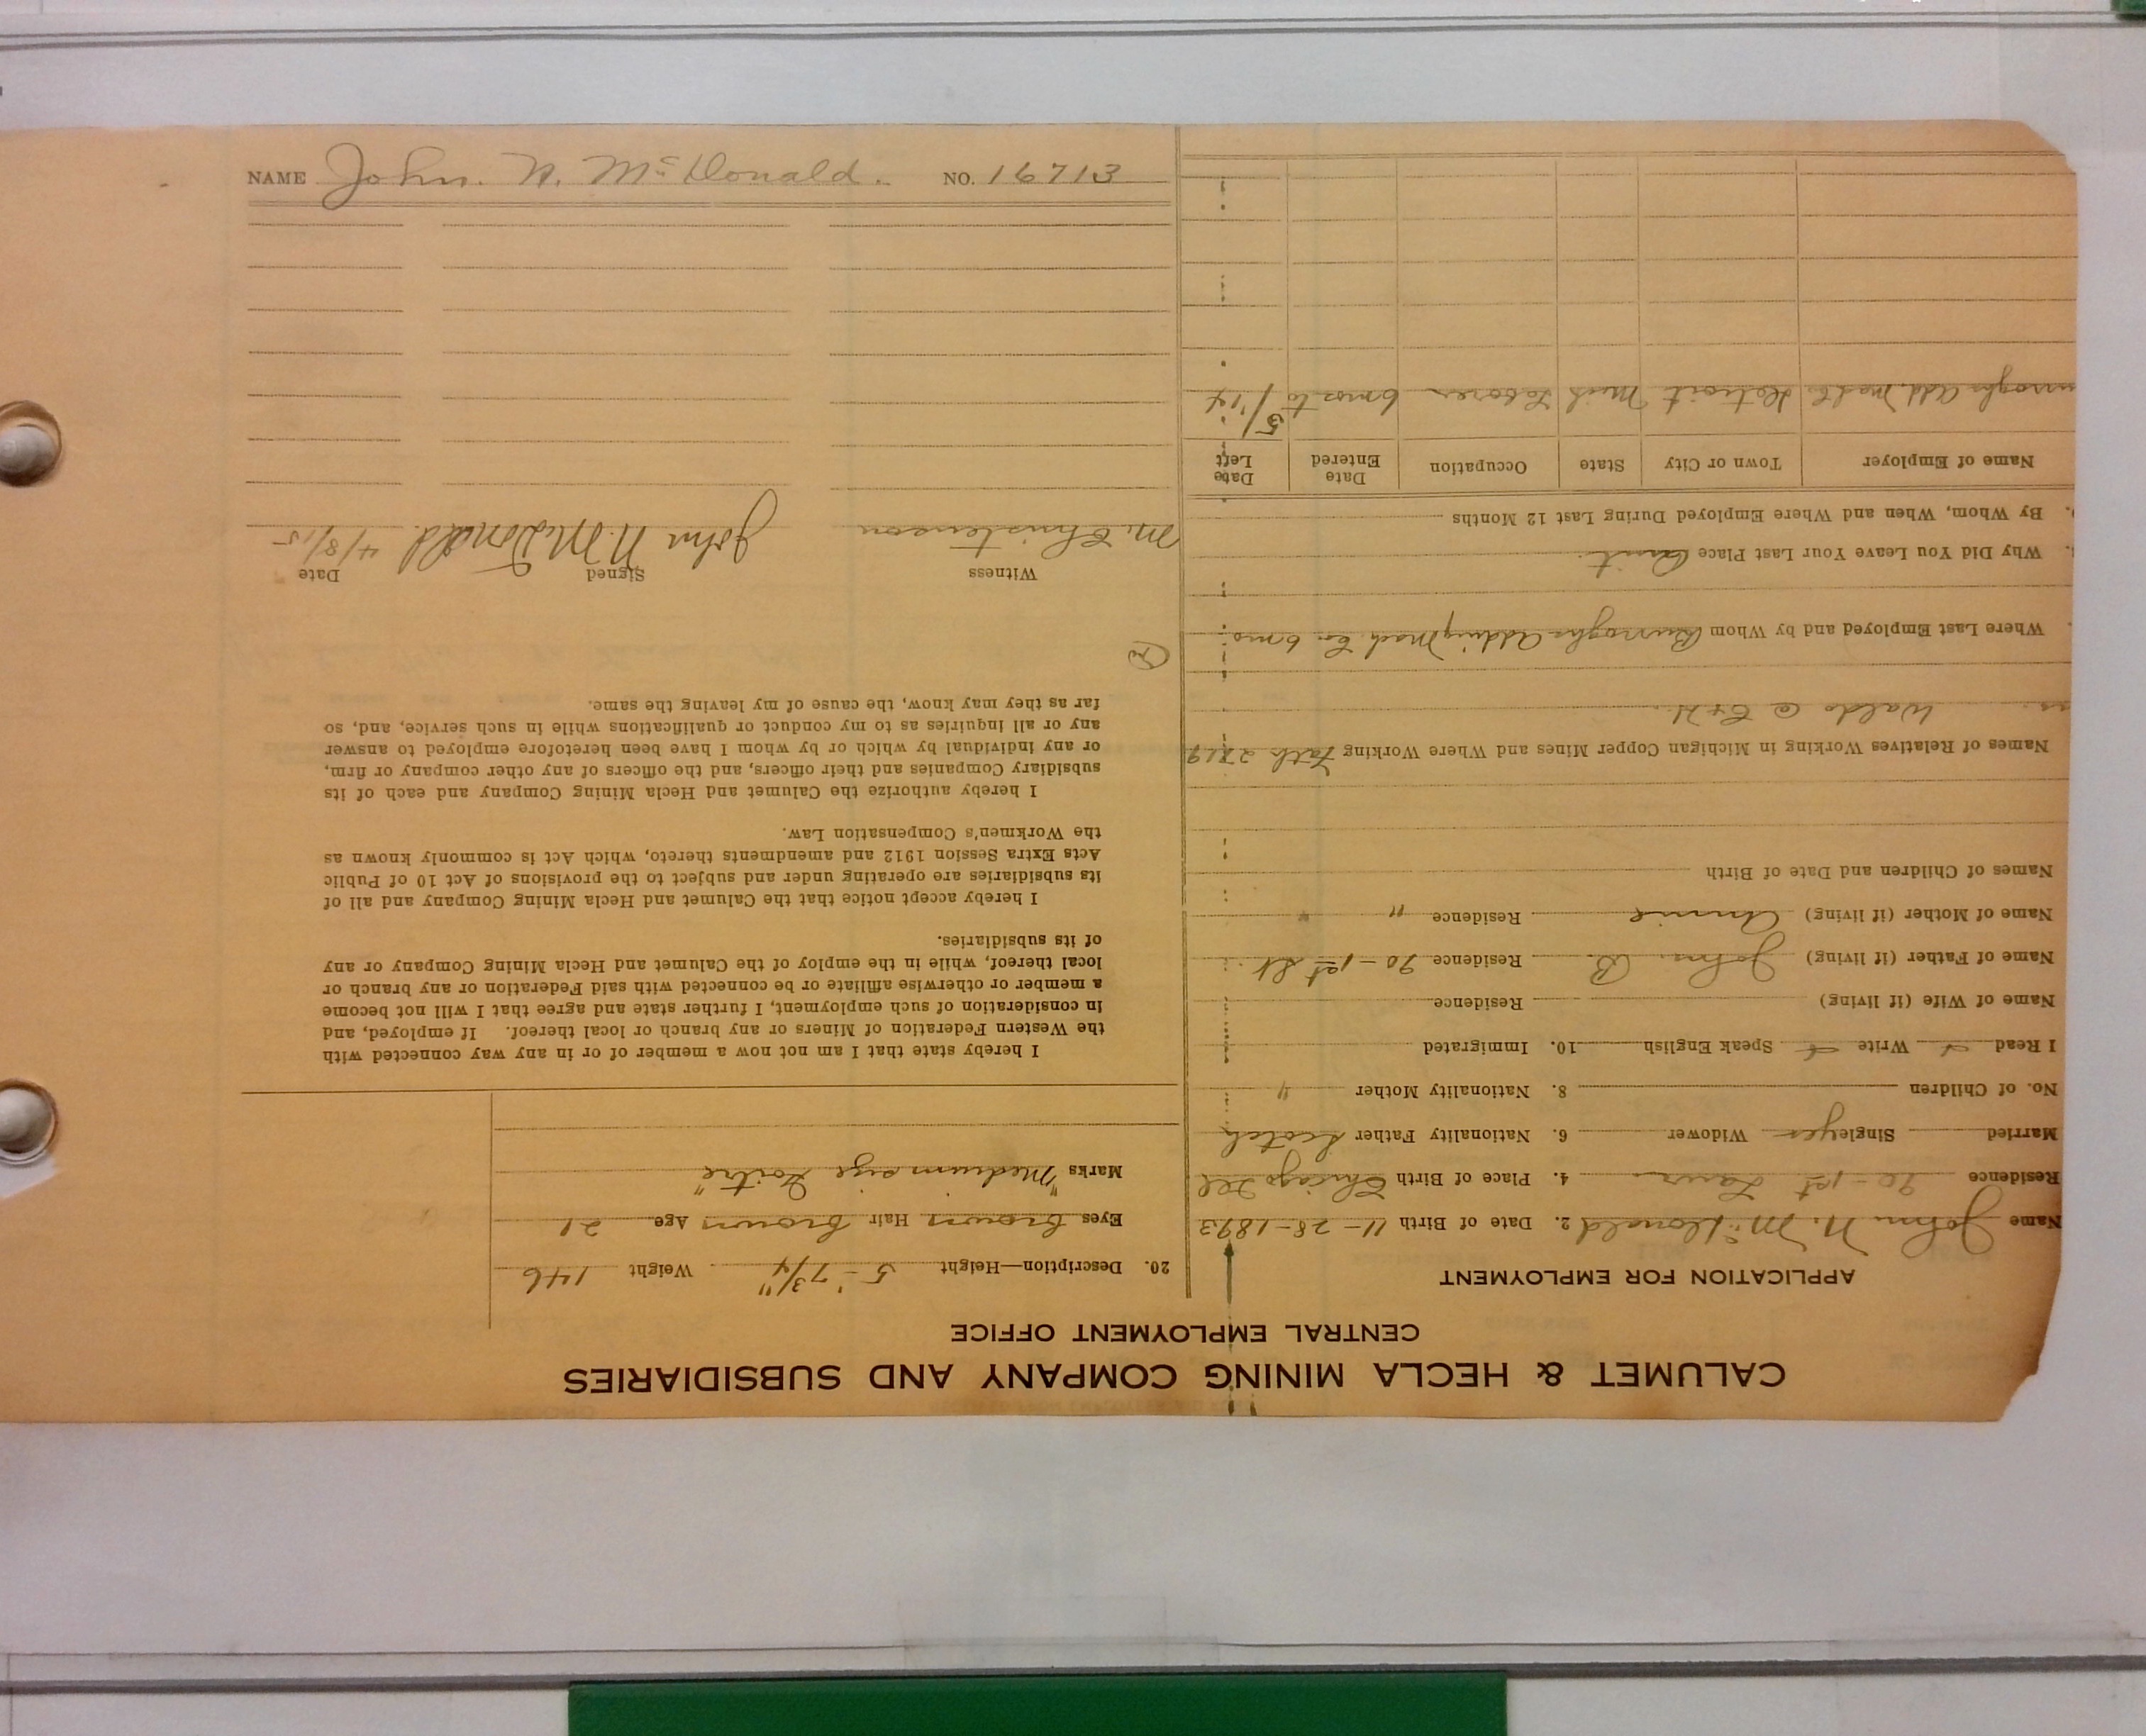 CALUMET & HECLA MINING COMPANY AND SUBSIDIARIES
CENTRAL EMPLOYMENT OFFICE
APPLICATION FOR EMPLOYMENT
Name John N. McDonald 2. Date of Birth 11-28-1893
Residence 90-1st Laur 4. Place of Birth Chicago Ill
Married Single yes Widower 6. Nationality Father Scotch
No. of Children 8. Nationality Mother "
I Read Write Speak English 10. Immigrated
Name of Wife (if living) Residence
Name of Father (if living) John B. Residence 90-1st St.
Name of Mother (if living) Annie Residence " "
Names of Children and Date of Birth
Names of Relatives Working in Michigan Copper Mines and Where Working Fath
Waldo @ C&H.
Where Last Employed and by Whom Burroughs Adding Mach Co. 6 mos
Why Did You Leave Your Last Place Quit.
By Whom, When and Where Employed During Last 12 Months
Name of Employer Town or City State Occupation Date Entered Date Left
Add. Mach Detroit Mich Laborer 6 mos to 5/14
20. Description—Height 5'-7 3/4" Weight 146
Eyes brown Hair brown Age 21
Marks "Medium size Goitre"
I hereby state that I am not now a member of or in any way connected with
the Western Federation of Miners or any branch or local thereof. If employed, and
in consideration of such employment, I further state and agree that I will not become
a member or otherwise affiliate or be connected with said Federation or any branch or
local thereof, while in the employ of the Calumet and Hecla Mining Company or any
of its subsidiaries.
I hereby accept notice that the Calumet and Hecla Mining Company and all of
its subsidiaries are operating under and subject to the provisions of Act 10 of Public
Acts Extra Session 1912 and amendments thereto, which Act is commonly known as
the Workmen's Compensation Law.
I hereby authorize the Calumet and Hecla Mining Company and each of its
subsidiary Companies and their officers, and the officers of any other company or firm,
or any individual by which or by whom I have been heretofore employed to answer
any or all inquiries as to my conduct or qualifications while in such service, and, so
far as they may know, the cause of my leaving the same.
Witness Signed Date
M. Christenson John N. McDonald. 4/8/15
NAME John. N. McDonald. NO. 16713